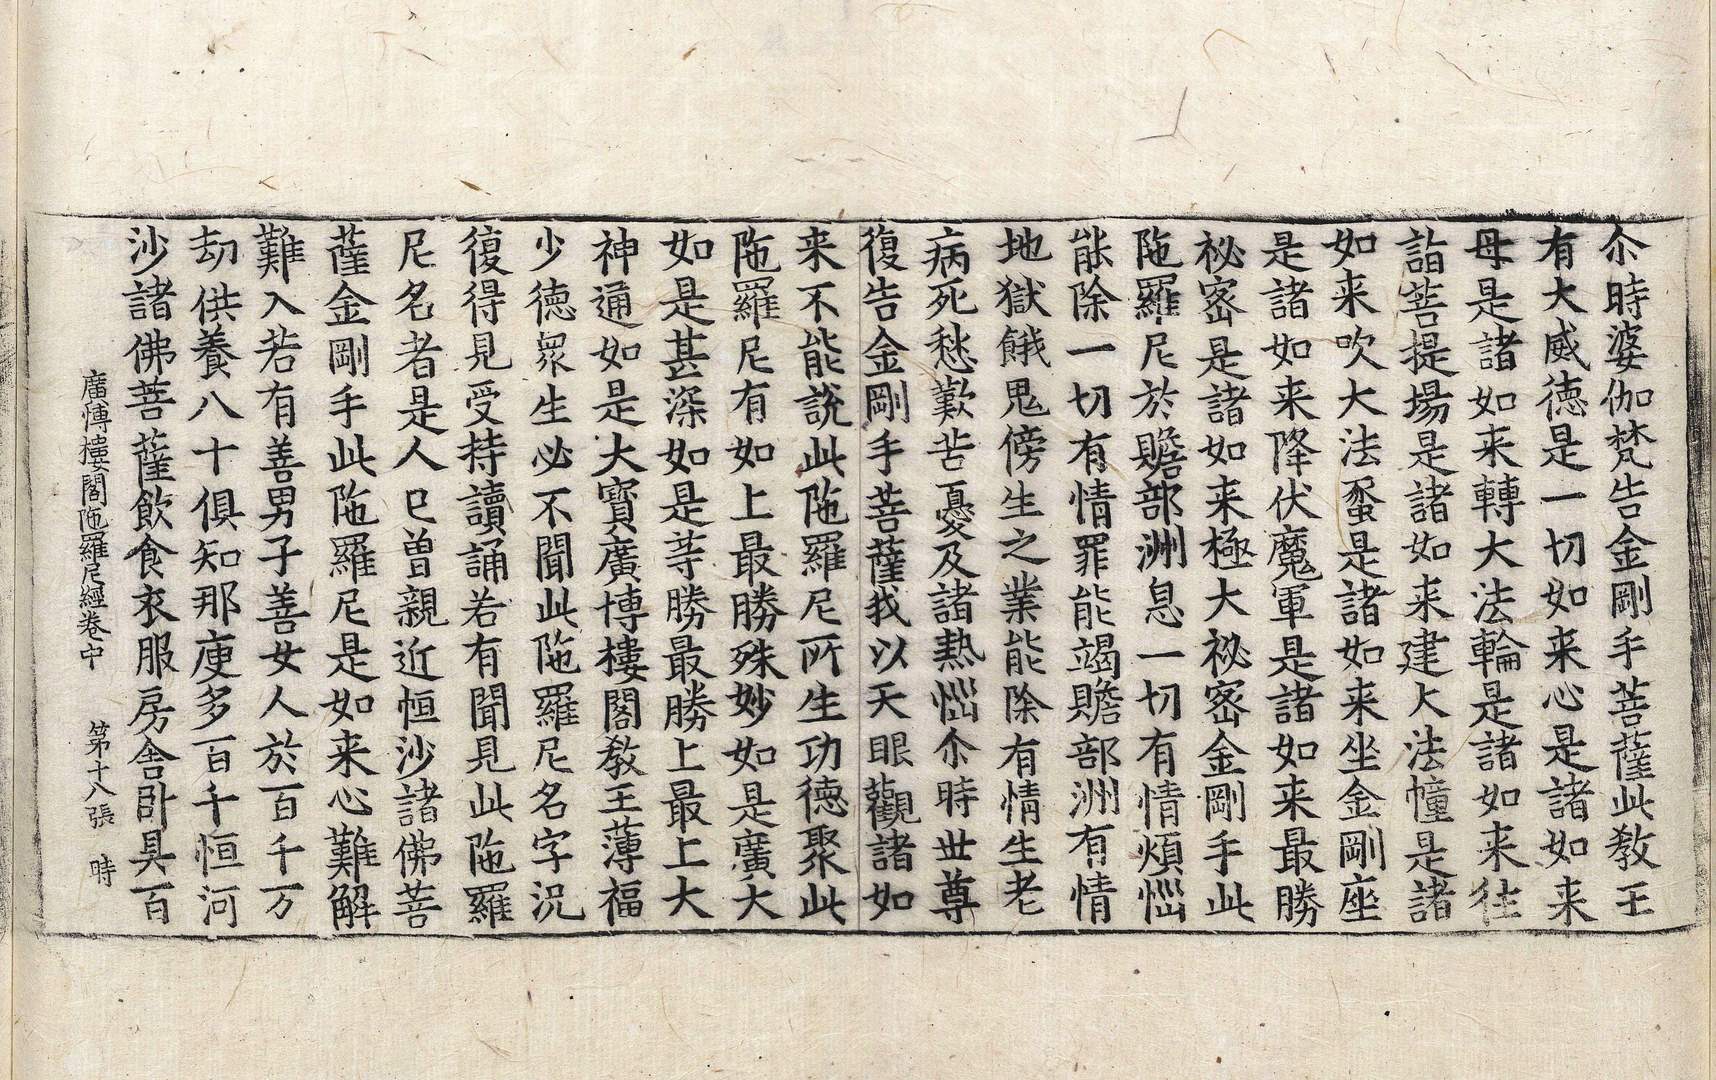 尒時婆伽梵告金剛手菩薩此教王
有大威德是一切如来心是諸如来
母是諸如来轉大法輪是諸如来往
詣菩提場是諸如来建大法幢是諸
如来吹大法䗍是諸如来坐金剛座
是諸如来降伏魔軍是諸如来最勝
祕密是諸如来極大祕密金剛手此
陁羅尼於贍部洲息一切有情煩惱
能除一切有情罪能竭贍部洲有情
地獄餓鬼傍生之業能除有情生老
病死愁歎苦憂及諸熱惱尒時世尊
復告金剛手菩薩我以天眼觀諸如
来不能說此陁羅尼所生功德聚此
陁羅尼有如上最勝殊妙如是廣大
如是甚深如是等勝最勝上最上大
神通如是大寶廣博樓閣教王薄福
少德衆生必不聞此陁羅尼名字況
復得見受持讀誦若有聞見此陁羅
尼名者是人已曾親近恒沙諸佛菩
薩金剛手此陁羅尼是如来心難解
難入若有善男子善女人於百千万
劫供養八十俱知那庾多百千恒河
沙諸佛菩薩飲食衣服房舍卧具百
廣博樓閣陁羅尼經卷中 第十八張 時